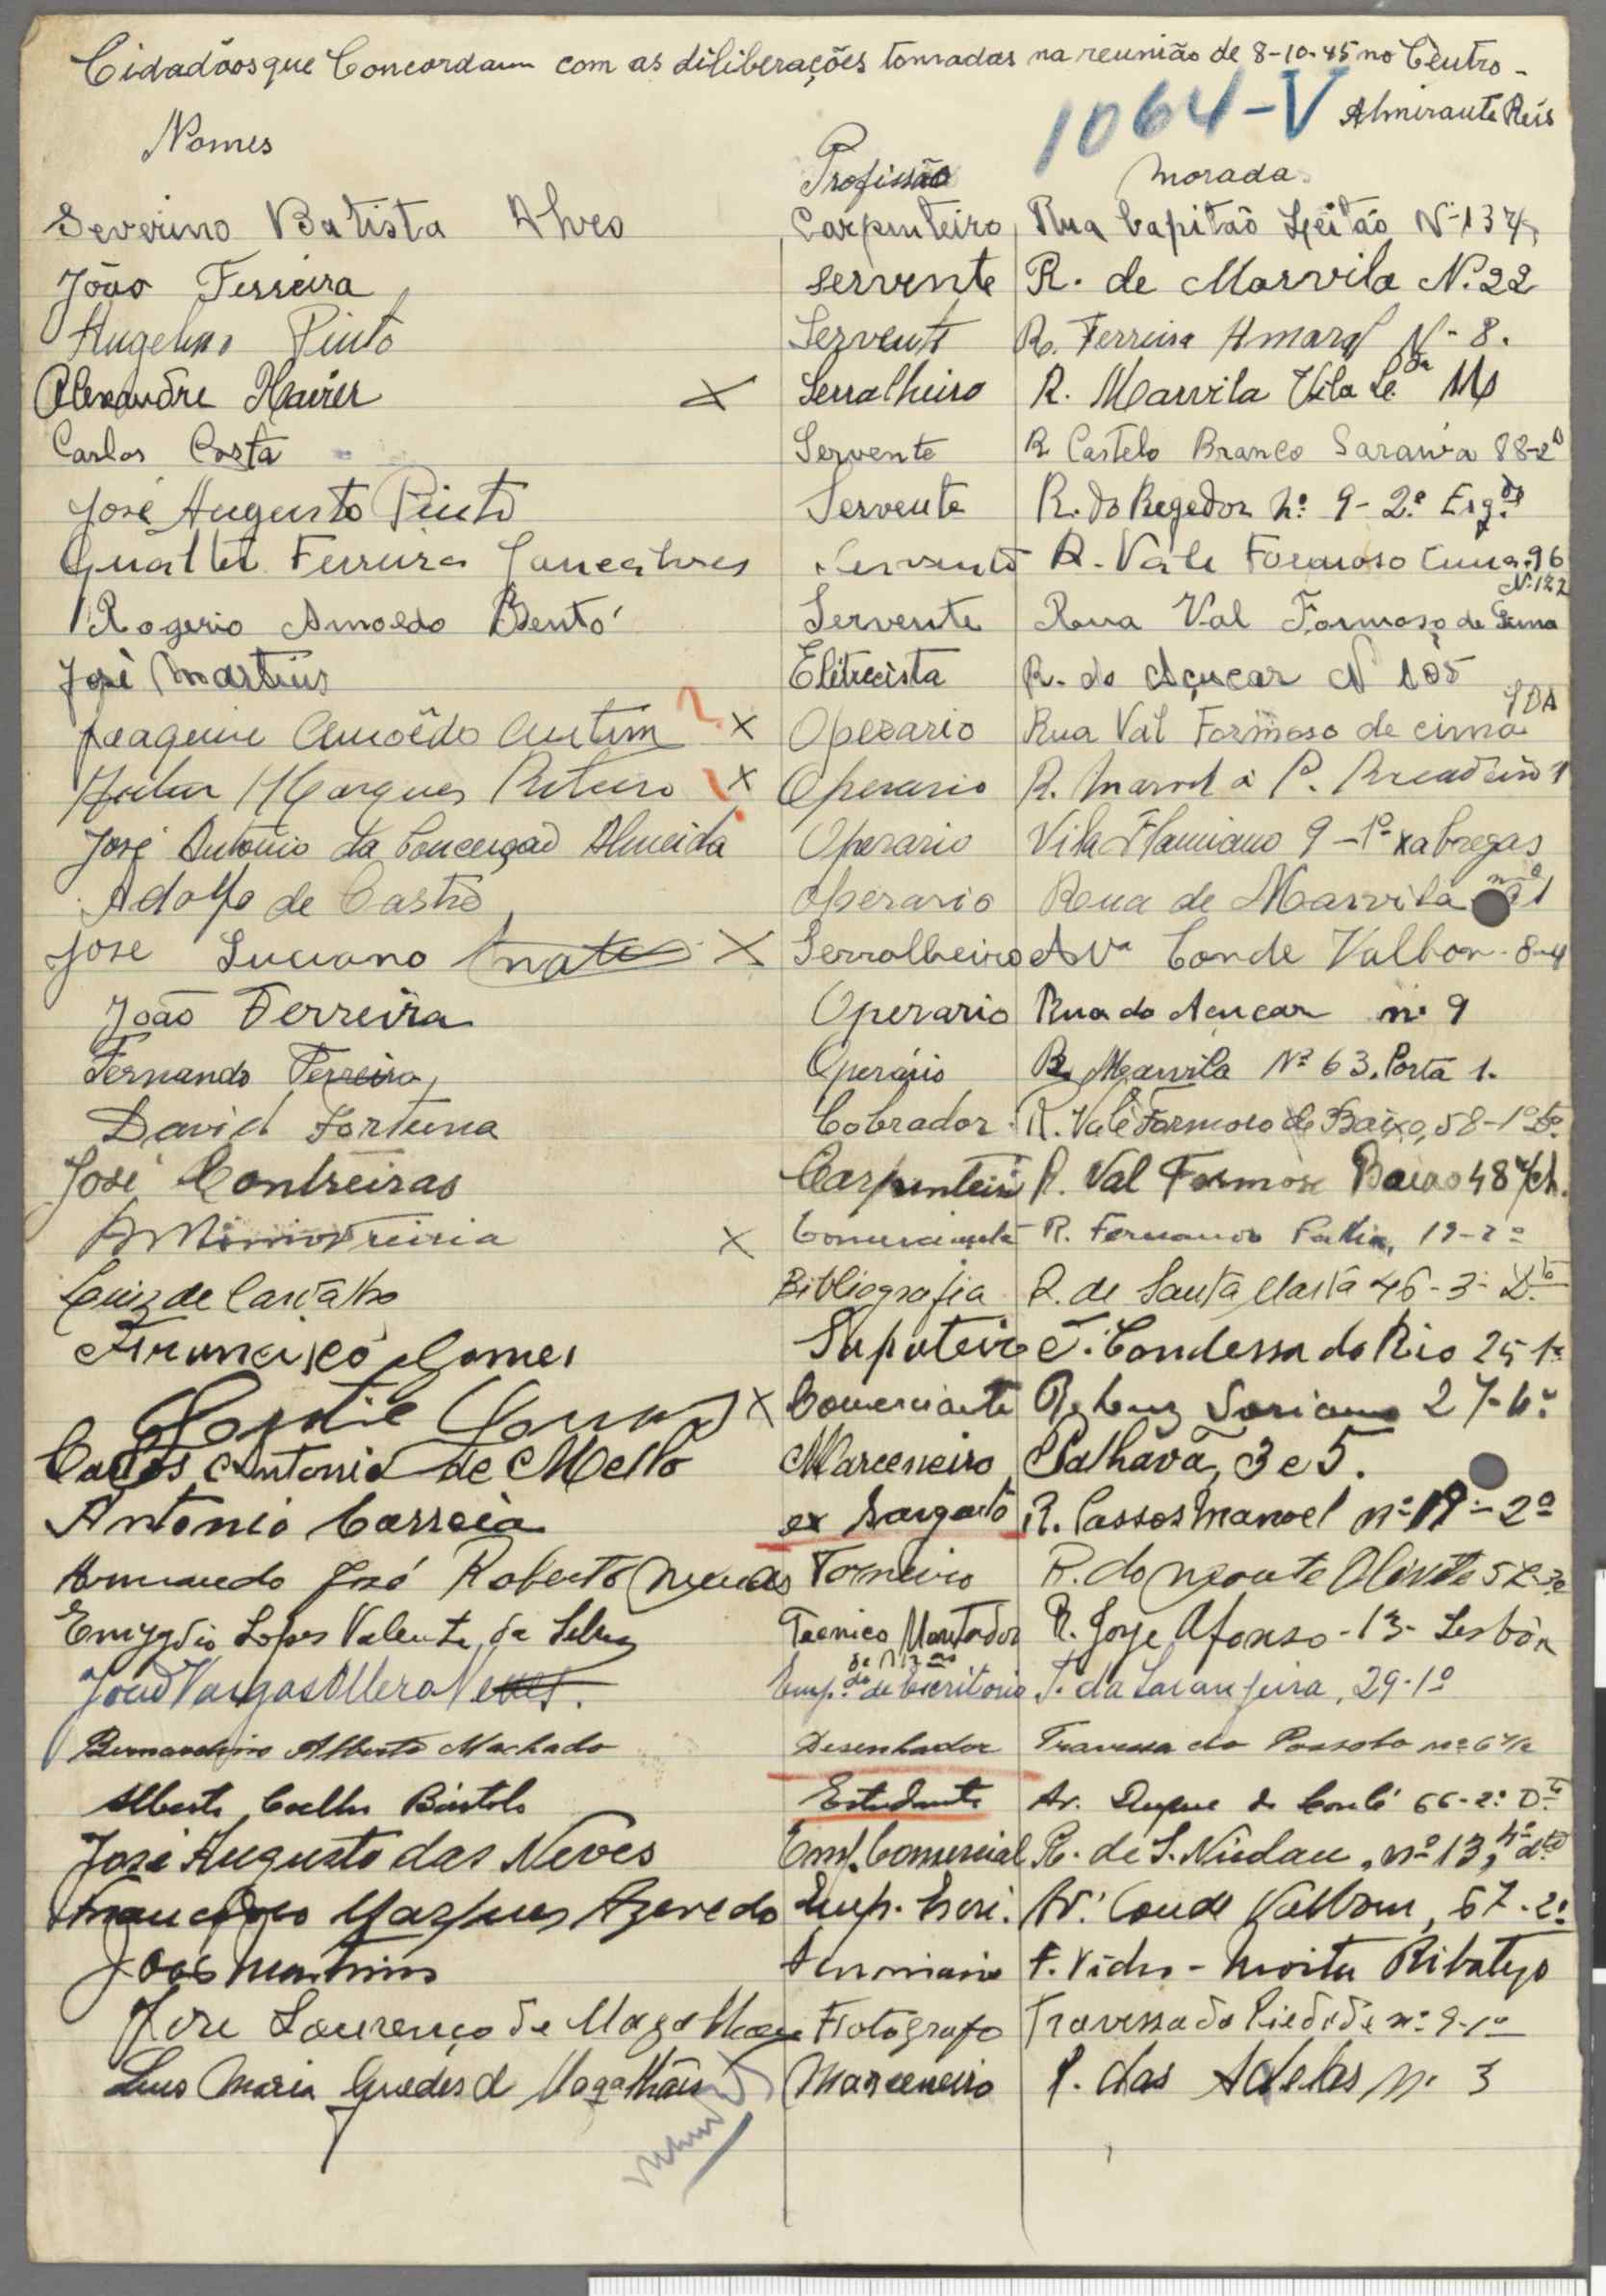 Cidadãos que Concordam com as diliberações tomadas na reunião de 8-10-45 no Centro
1064-V Almirante Reis
Nomes Profissão Morada
Severino Batista Alves Carpinteiro Rua Capitão Leitão Nº 137
João Ferreira servente R. de Marvila N. 22
Angelino Pinto Servente R. Ferreira Amaral Nº 8.
Alexandre Xavier X Serralheiro R. Marvila Vila
Carlos Costa Servente R Castelo Branco Saraiva 88-2º
José Augusto Pinto Servente R. do Regedor nº 9-2º Esqdo
Gualter Ferreira Goncalves Servente R. Vale Formoso Cima 96
Nº 122
Rogerio Arnoldo Bento Servente Rua Val Formoso de Sima
José Martins Elitrecista R. do Açucar N 105
Joaquim Amoêdo X Operario Rua Val Formoso de cima
Marques Ribeiro X Operario R.
José Antonio da Conceição Almeida Operario Vila Flamiano 9-1º xabregas
Adolfo de Castro operario Rua de Marvila
José Luciano X Serralheiro Avª Conde Valbom 8-4
João Ferreira Operario Rua do Açucar nº 9
Fernando Ferreira Operário R. Marvila Nº 63. Porta 1.
David Fortuna Cobrador R. Vale Formoso de Baixo, 58-1º Dº
José Contreiras Carpinteiro R. Val Formoso Baixo 48 r/ch.
X Comerciante R. Fernando 19-2º
Luiz de Carvalho Bibliografia R. de Santa Marta 46-3º D.to
Francisco Gomes Sapateiro T. Condessa do Rio 25 1º
X Comerciante R. Luz Soriano 27-4º
Carlos Antonio de Mello Marceneiro Palhavã, 3 e 5.
Antonio Correia ex Sargento R. Passos Manoel nº 19-2º
Armando José Roberto Torneiro R. do Monte Olivete
Emygdio Lopes Valente da Silva Tecnico Montador R. Jorge Afonso-13- Lisbôa
João Vargas Ollero Neves. Emp.do de Escritorio T. da Laranjeira, 29-1º
Bernardino Alberto Machado Desenhador Travessa do Possolo nº
Alberto Coelho Bártolo Estudante Av. Duque de Loulé 66-2º D.to
José Augusto das Neves Emp. Comercial R. de S. Nicolau, nº 13, 4º dto
Francisco Marques Azevedo Emp. Escri. Av. Conde Valbom, 67-2º
João Martins F. Vidro - Moita Ribatejo
José Lourenço de Magalhães Fotografo Travessa da Piedade nº 9-1º
Luis Maria Guedes d Magalhães Marceneiro R. das Adelas nº 3